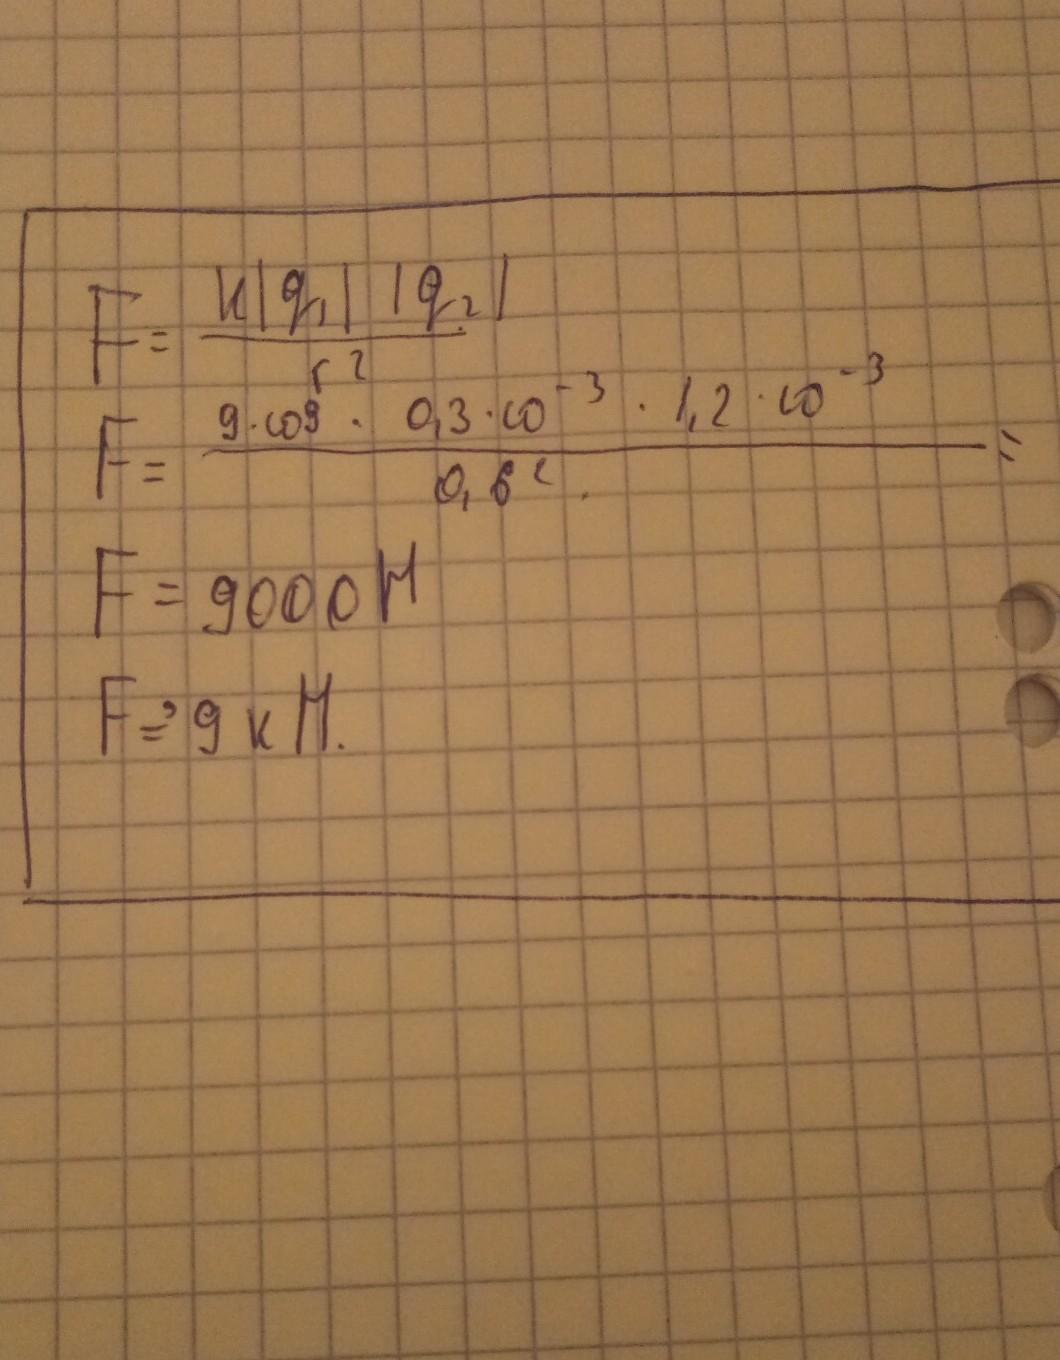 F = k|q₁| |q₂| / r²
F = 9·10⁹ · 0,3·10⁻³ · 1,2·10⁻³ / 0,6² =
F = 9000 Н
F = 9 кН.